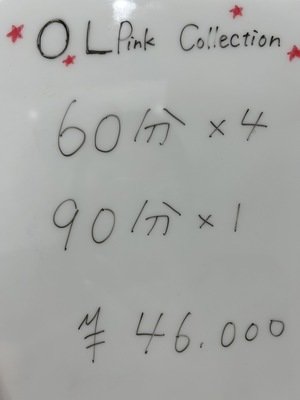 OL Pink Collection
60分×4
90分×1
¥46.000